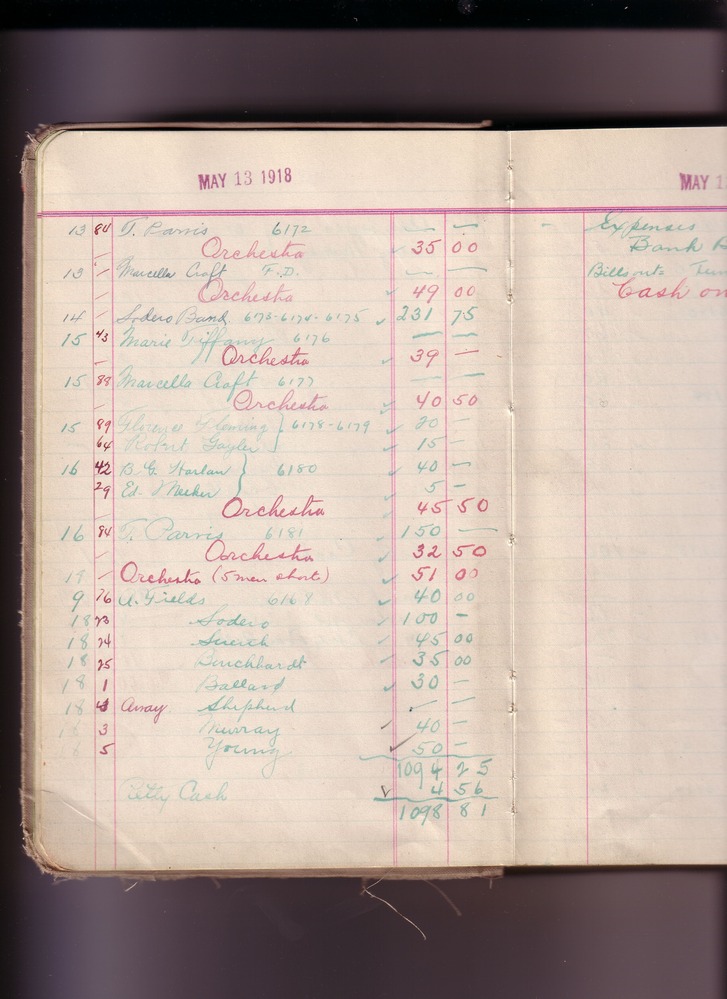 MAY 13 1918
13 84 T. Parvis 6172 — —
Orchestra 35 00
13 — Marcella Craft F.D. — —
— Orchestra 49 00
14 — Sodero Band 6173-6174-6175 231 75
15 43 Marie Tiffany 6176 — —
— Orchestra 39 —
15 88 Marcella Craft 6177 — —
— Orchestra 40 50
15 89 Florence Fleming } 6178-6179 20 —
64 Robert Gayler 15 —
16 42 B. G. Harlan } 6180 40 —
29 Ed. Meeker 5 —
— Orchestra 45 50
16 84 T. Parvis 6181 150 —
— Orchestra 32 50
17 — Orchestra (5 men short) 51 00
9 76 A. Fields 6168 40 00
18 23 Sodero 100 —
18 24 Search 45 00
18 25 Burckhardt 35 00
18 1 Ballard 30 —
18 4 Away Shepherd — —
18 3 Murray 40 —
18 5 Young 50 —
1094 25
Petty Cash 4 56
1098 81
MAY 1
Expenses
Bank B
Bills out
Cash on